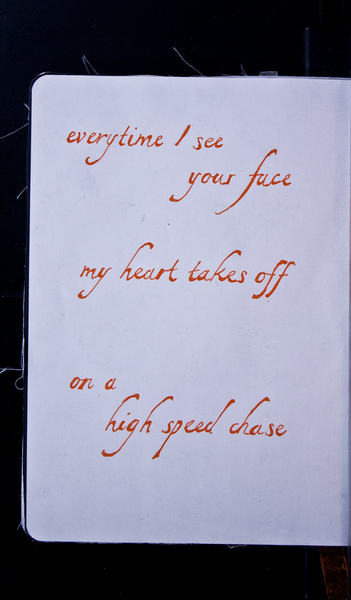 everytime I see
your face
my heart takes off
on a
high speed chase